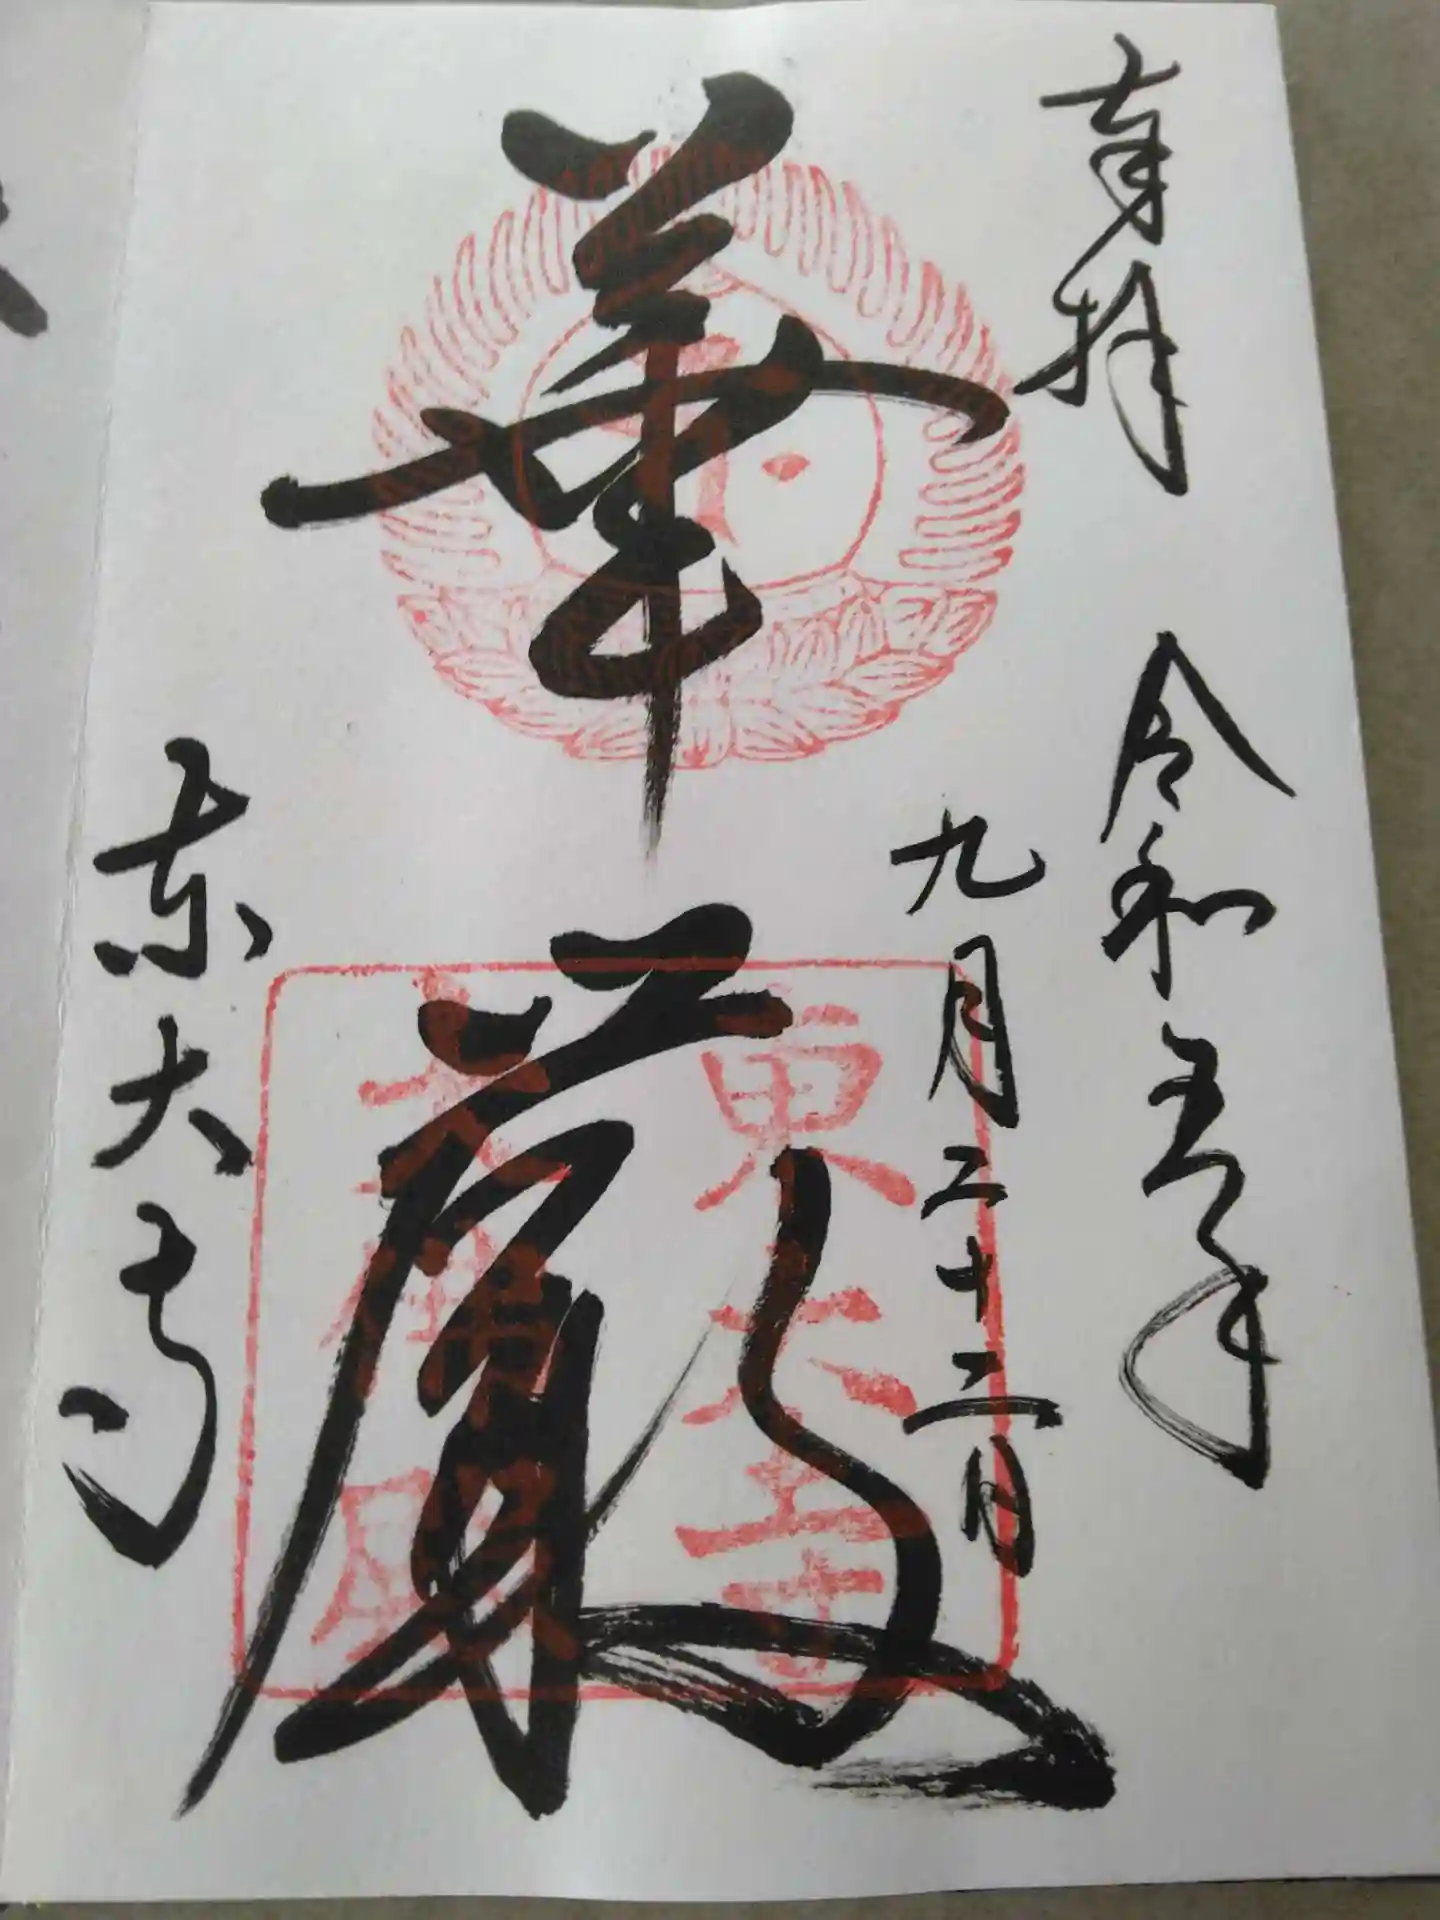 奉拝 令和五年
九月二十二日
華厳
東大寺
東大寺
大佛殿